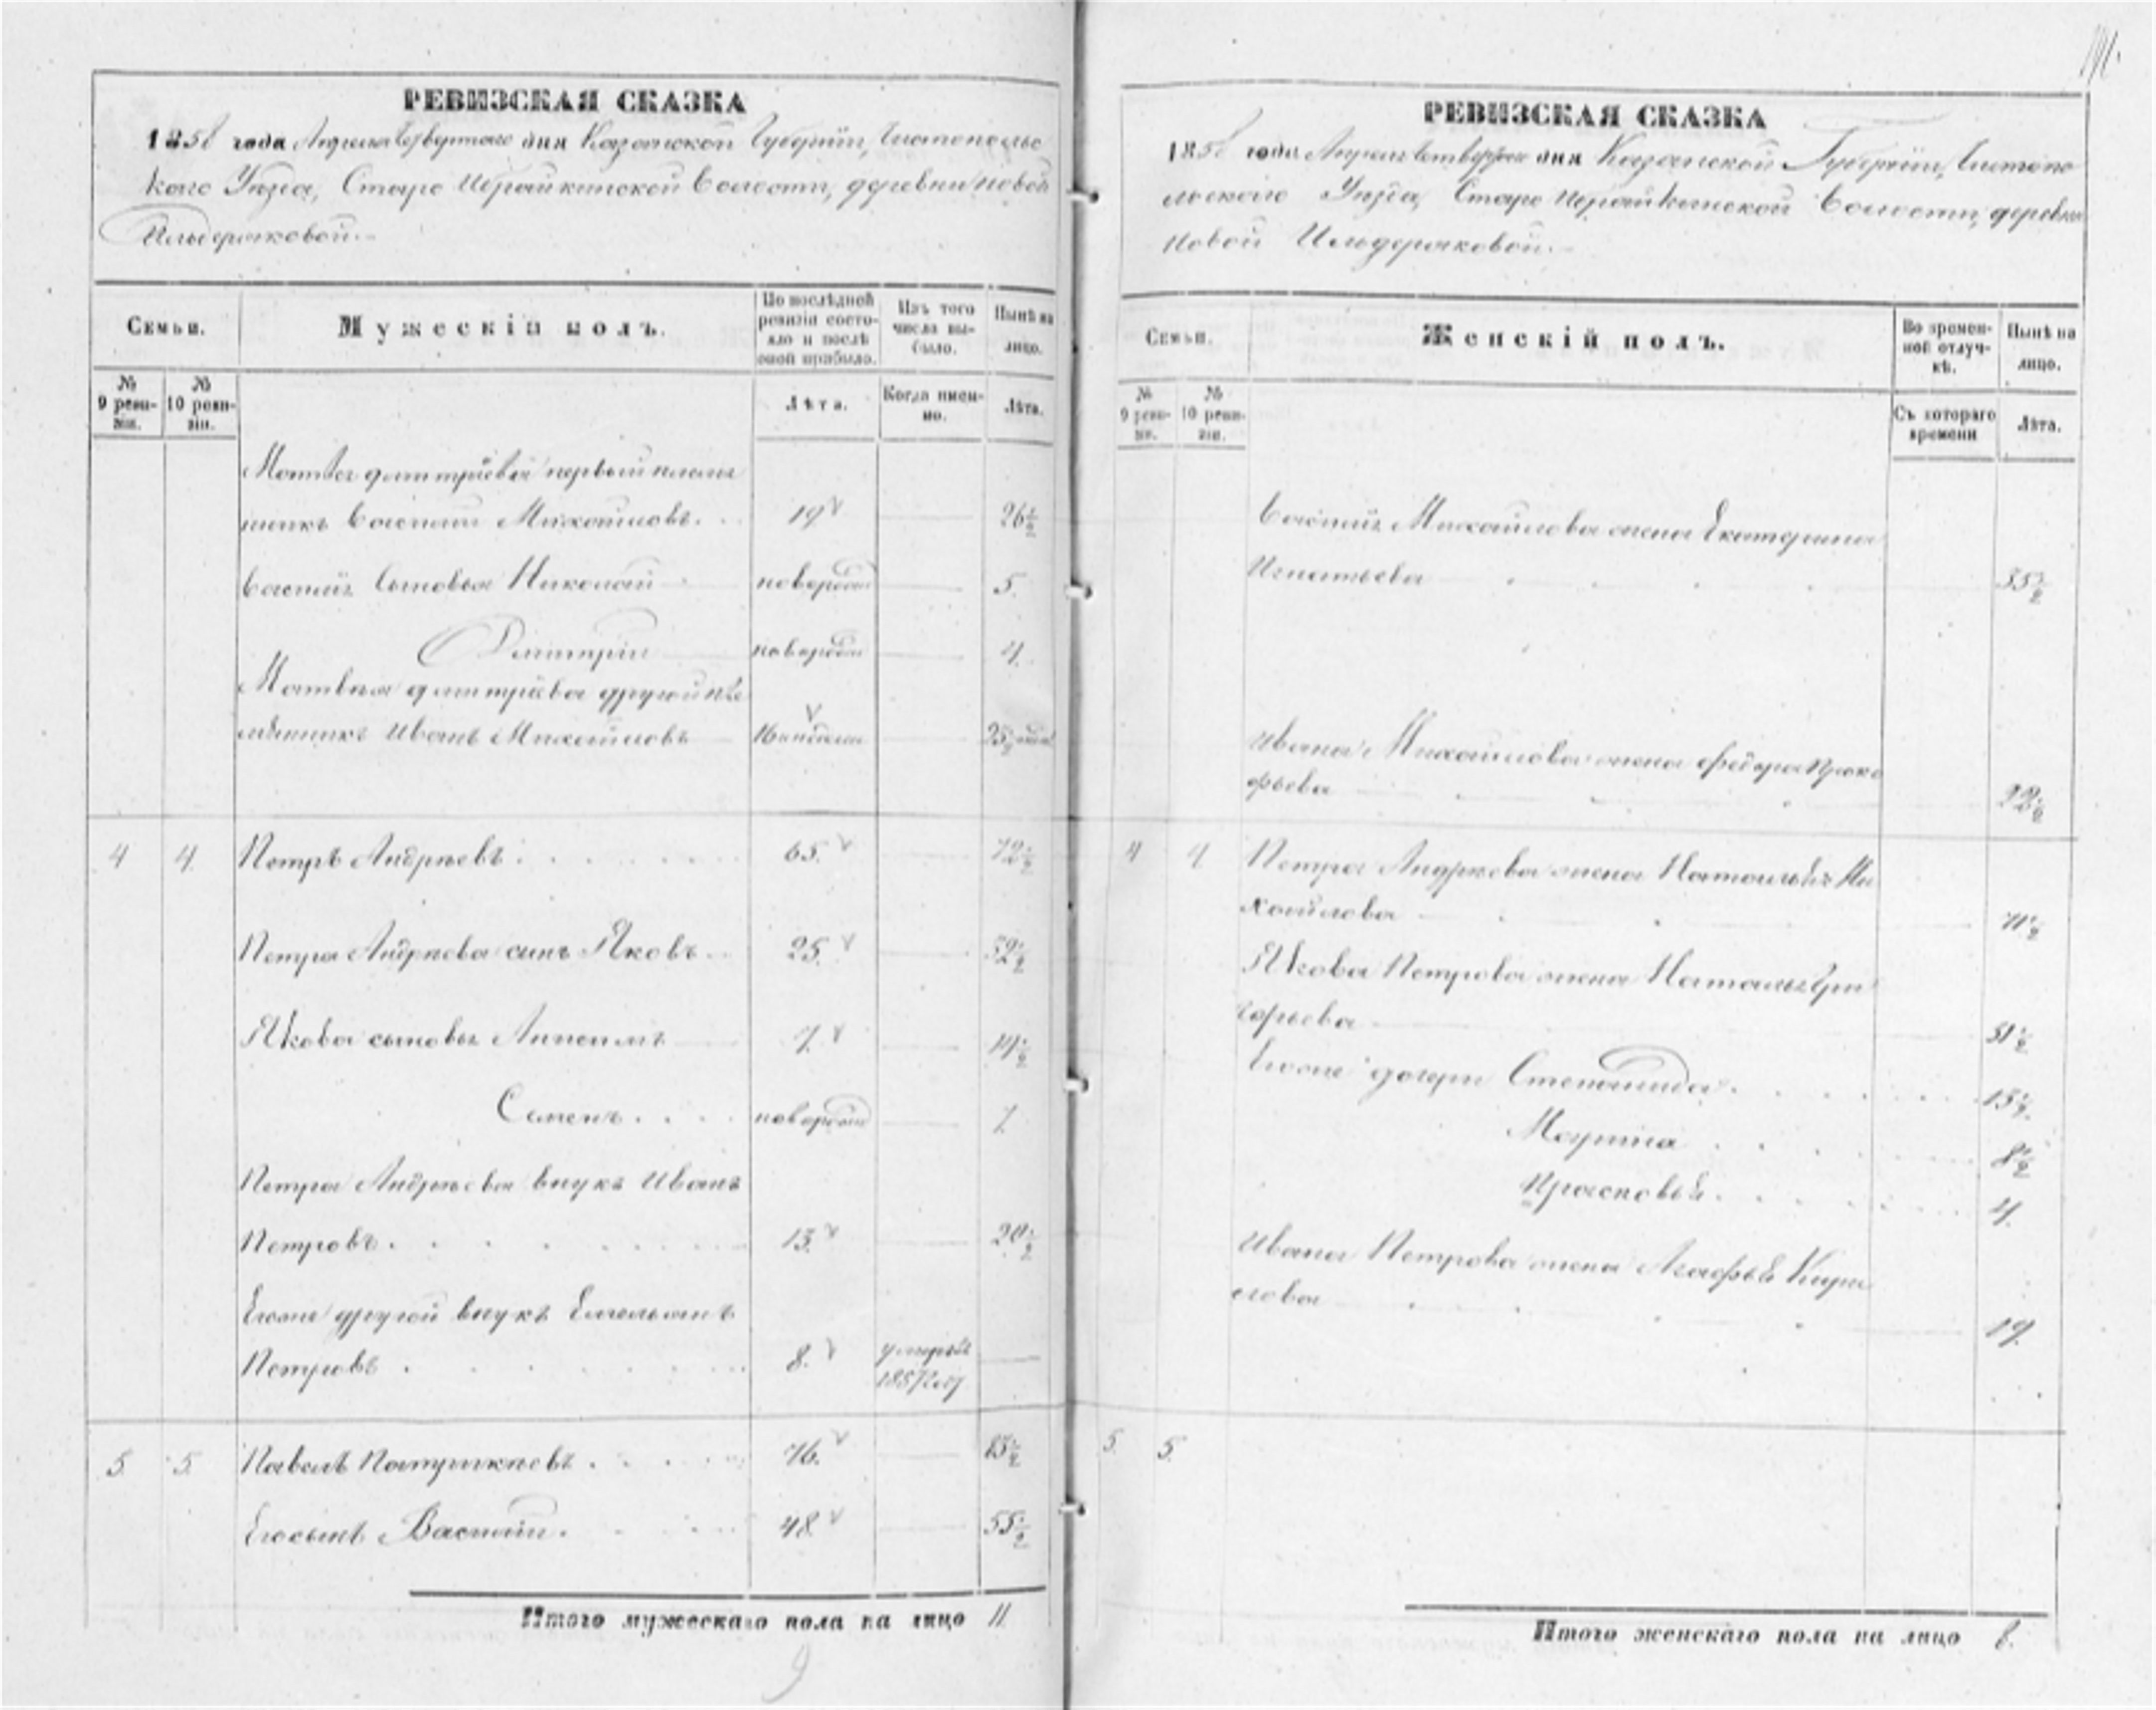 РЕВИЗСКАЯ СКАЗКА
1858 года Апреля четвертаго дня Казанской Губерніи, Чистопольс
каго Уѣзда, Старо Ибрайкинской Волости, деревни новой
Ильдеряковой.
Семьи.
Мужескій полъ.
По послѣдней ревизіи состо-
яло и послѣ
оной прибыло.
Изъ того
числа вы-
было.
Нынѣ на
лицо.
№
9 реви-
зіи.
№
10 реви-
зіи.
Лѣта.
Когда имен-
но.
Лѣта.
Матвея дмитріева первый племя
нникъ Василий Михайловъ. 19 26½
Василия сыновья Николай новорож 5.
Дмитрий новорож 4.
Матвея дмитріева другой пле
мянникъ Иванъ Михайловъ
4 4. Петръ Андрѣевъ 65. 72½
Петра Андрѣева сынъ Яковъ 25. 32½
Якова сыновья 7. 14½
Семенъ новорож 7.
Петра Андрѣева внукъ Иванъ
Петровъ 13. 20½
Его же другой внукъ Емельянъ
Петровъ 8. умеръ
въ 1857 году
5. 5. Павелъ 76. 83½
Его сынъ Василий. 48. 55½
Итого мужескаго пола на лицо 11.
РЕВИЗСКАЯ СКАЗКА
1858 года Апреля четвертаго дня Казанской Губерніи, Чистопо
льскаго Уѣзда, Старо Ибрайкинской Волости, деревни
Новой Ильдеряковой.
Семьи.
Женскій полъ.
Во времен-
ной отлуч-
кѣ.
Нынѣ на
лицо.
№
9 реви-
зіи.
№
10 реви-
зіи.
Съ котораго
времени
Лѣта.
Василия Михайлова жена Екатерина
Игнатьева 35½
Ивана Михайлова жена Федора Проко
фьева 22½
4 4. Петра Андрѣева жена Наталья Ми
хайлова 71½
Якова Петрова жена Наталья Гри
горьева 31½
Его же дочери Степанида. 13½
Марина 8½
Прасковья. 4.
Ивана Петрова жена Агафья Кири
лова 19.
5. 5.
Итого женскаго пола на лицо 8.